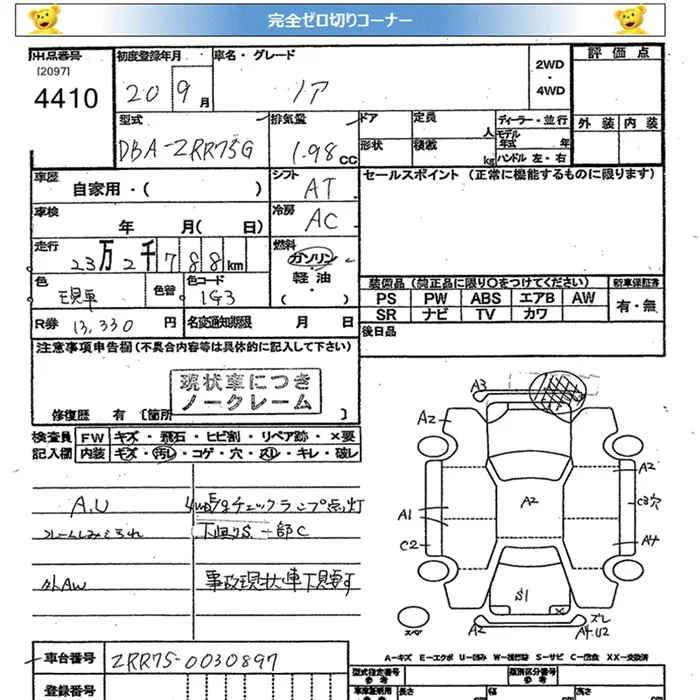 完全ゼロ切りコーナー
出品番号
[2097]
4410
初度登録年月
20 9月
車名・グレード
ノア
2WD
・
4WD
評価点
外装 内装
型式
DBA-ZRR75G
排気量
1.98 CC
ドア
形状
定員
人
積載
kg
ディーラー・並行
モデル年式 年
ハンドル 左・右
車歴
自家用・( )
シフト
AT
セールスポイント (正常に機能するものに限ります)
車検
年 月( 日)
冷房
AC
走行
23万2千788km
燃料
ガソリン
・
軽油
・
( )
色
現車
色替
色コード
1G3
装備品(純正品に限り○をつけてください)
新車保証書
PS PW ABS エアB AW
SR ナビ TV カワ
有・無
R券 13,330 円
名変通知期限 月 日
後日品
注意事項申告欄(不具合内容等は具体的に記入して下さい)
現状車につき
ノークレーム
修復歴 有 [箇所 ]
検査員記入欄
FW キズ・飛石・ヒビ割・リペア跡・×要
内装 キズ・汚レ・コゲ・穴・スレ・キレ・破レ
A.U
4WDチェックランプ点灯
下回りS 一部C
外AW
事故現状車下見要す
A3
A2
A2
A2
C3穴
A1
C2
A4
S1
スペア
A2
ズレ
A4.U2
A-キズ E-エクボ U-凹み W-補修跡 S-サビ C-腐食 XX-交換済
車台番号
ZRR75-0030897
登録番号
型式指定番号
参考
類別区分番号
参考
長さ
幅
高さ
cm